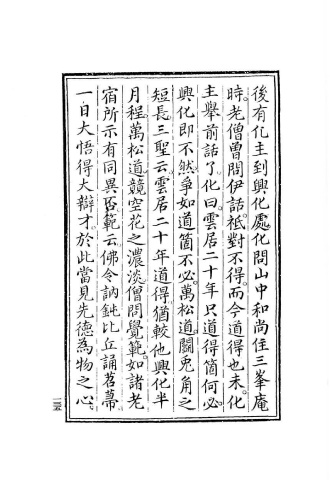 後有化主到興化處化問山中和尚住三峯庵
時老僧曾問伊話祇對不得而今道得也未化
主舉前話了化曰雲居二十年只道得箇何必
興化即不然爭如道箇不必萬松道鬭兎角之
短長三聖云雲居二十年道得猶較他興化半
月程萬松道競空花之濃淡僧問覺範如諸老
宿所示有同異否範云佛令訥鈍比丘誦苕菷
一日大悟得大辯才於此當見先德為物之心
一三五